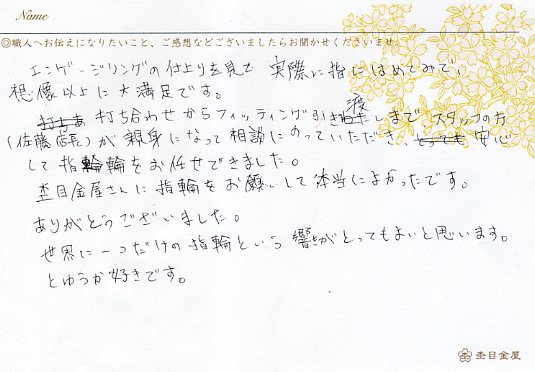 Name
◎職人へお伝えになりたいこと、ご感想などございましたらお聞かせくださいませ。
エンゲージリングの仕上りを見て 実際に指にはめてみて、
想像以上に大満足です。
打ち合わせからフィッティング、引き渡しまで、スタッフの方
(佐藤店長)が親身になって相談にのっていただき、とっても安心
して指輪をお任せできました。
杢目金屋さんに指輪をお願いして本当によかったです。
ありがとうございました。
世界に一つだけの指輪という響きがとってもよいと思います。
とゆうか好きです。
杢目金屋